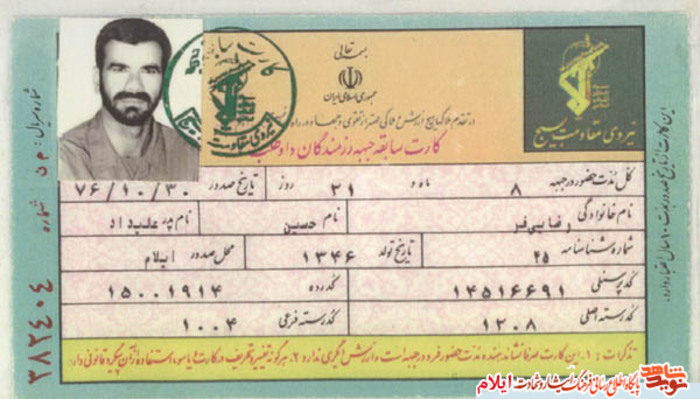 بسمه تعالی
جمهوری اسلامی ایران
نیروی مقاومت بسیج
کارت سابقه جبهه رزمندگان داوطلب
کل مدت حضور در جبهه ۸ ماه و ۲۱ روز تاریخ صدور ۷۶/۱۰/۳۰
نام خانوادگی رضایی‌فر نام حسین نام پدر علیداد
شماره شناسنامه ۲۵ تاریخ تولد ۱۳۴۶ محل صدور ایلام
کد پرسنلی ۱۴۵۱۶۶۹۱ کد رده ۱۵۰۰۱۹۱۴
کد رسته اصلی ۱۲۰۸ کد رسته فرعی ۱۰۰۴
تذکرات: ۱. این کارت صرفا نشاندهنده مدت حضور فرد در جبهه است و ارزش دیگری ندارد ۲. هرگونه تغییر و تحریف در کارت و یا سوء استفاده از آن پیگرد قانونی دارد.
شماره سریال: ۵۲ شماره ۳۸۲۴۰۴
این کارت از تاریخ صدور بمدت ۱۰ سال اعتبار دارد.
نوید شاهد
پایگاه اطلاع رسانی فرهنگ ایثار و شهادت ایلام